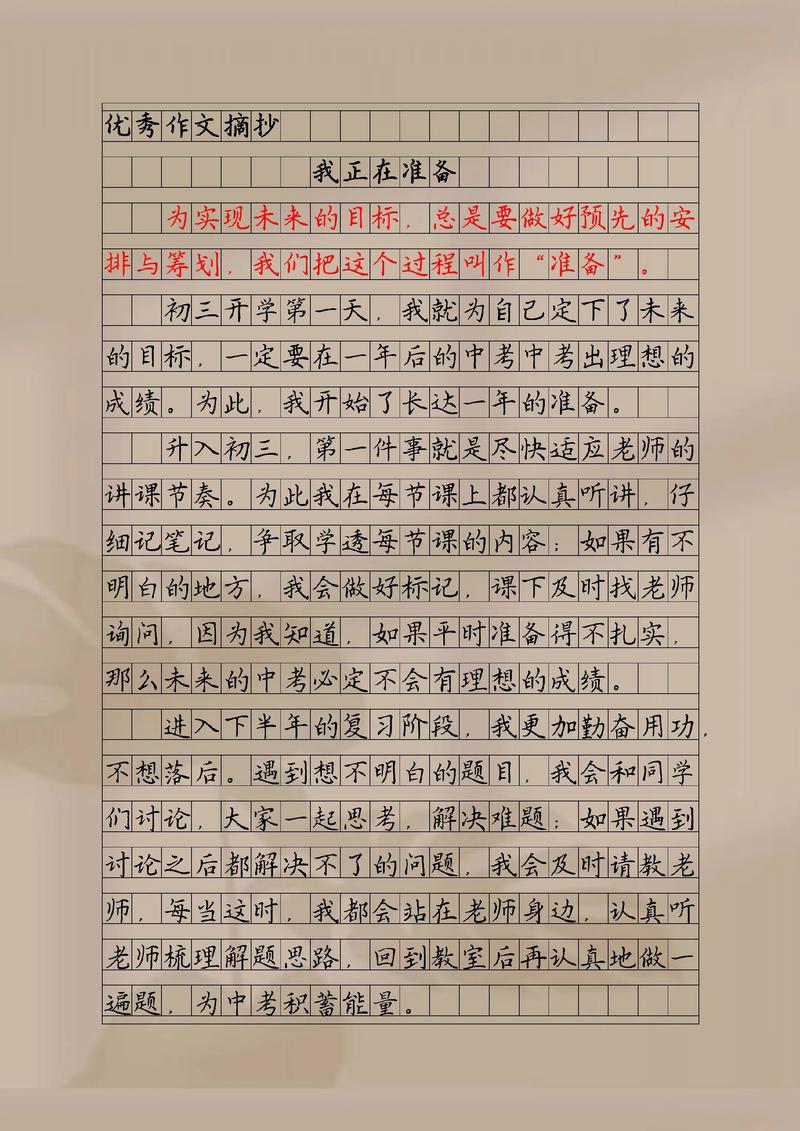 优秀作文摘抄
我正在准备
为实现未来的目标，总是要做好预先的安
排与筹划，我们把这个过程叫作“准备”。
初三开学第一天，我就为自己定下了未来
的目标，一定要在一年后的中考中考出理想的
成绩。为此，我开始了长达一年的准备。
升入初三，第一件事就是尽快适应老师的
讲课节奏。为此我在每节课上都认真听讲，仔
细记笔记，争取学透每节课的内容；如果有不
明白的地方，我会做好标记，课下及时找老师
询问，因为我知道，如果平时准备得不扎实，
那么未来的中考必定不会有理想的成绩。
进入下半年的复习阶段，我更加勤奋用功，
不想落后。遇到想不明白的题目，我会和同学
们讨论，大家一起思考，解决难题；如果遇到
讨论之后都解决不了的问题，我会及时请教老
师，每当这时，我都会站在老师身边，认真听
老师梳理解题思路，回到教室后再认真地做一
遍题，为中考积蓄能量。